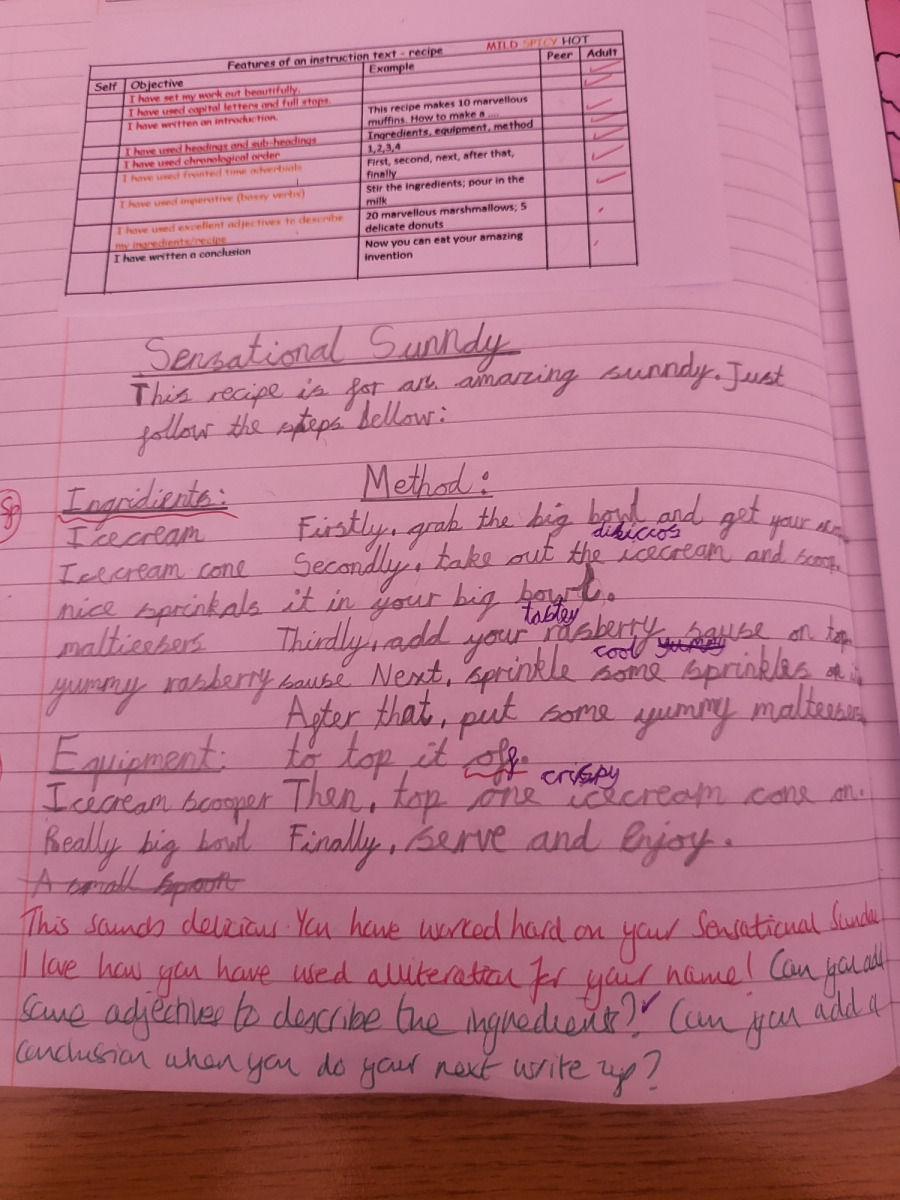 Features of an instruction text - recipe MILD SPICY HOT
Self Objective Example Peer Adult
I have set my work out beautifully.
I have used capital letters and full stops.
I have written an introduction. This recipe makes 10 marvellous muffins. How to make a ....
I have used headings and sub-headings Ingredients, equipment, method
I have used chronological order 1,2,3,4
I have used fronted time adverbials First, second, next, after that, finally
I have used imperative (bossy verbs) Stir the ingredients; pour in the milk
I have used excellent adjectives to describe my ingredients/recipe 20 marvellous marshmallows; 5 delicate donuts
I have written a conclusion Now you can eat your amazing invention
Sensational Sunndy
This recipe is for an amazing sunndy. Just
follow the steps bellow:
Sp
Ingridients:
Icecream
Icecream cone
nice sprinkals
maltieesers
yummy rasberry sause
Equipment:
Icecream scooper
Really big bowl
A small spoon
Method:
Firstly, grab the big bowl and get your
diliccos
Secondly, take out the icecream and scoop
it in your big bowl.
tastey
Thirdly, add your rasberry sause on top
cool yummy
Next, sprinkle some sprinkles on it
After that, put some yummy malteesers
to top it off.
crispy
Then, top one icecream cone on.
Finally, serve and Enjoy.
This sounds delicious. You have worked hard on your Sensational Sundae
I love how you have used alliteration for your name! Can you add
some adjectives to describe the ingredients? Can you add a
conclusion when you do your next write up?